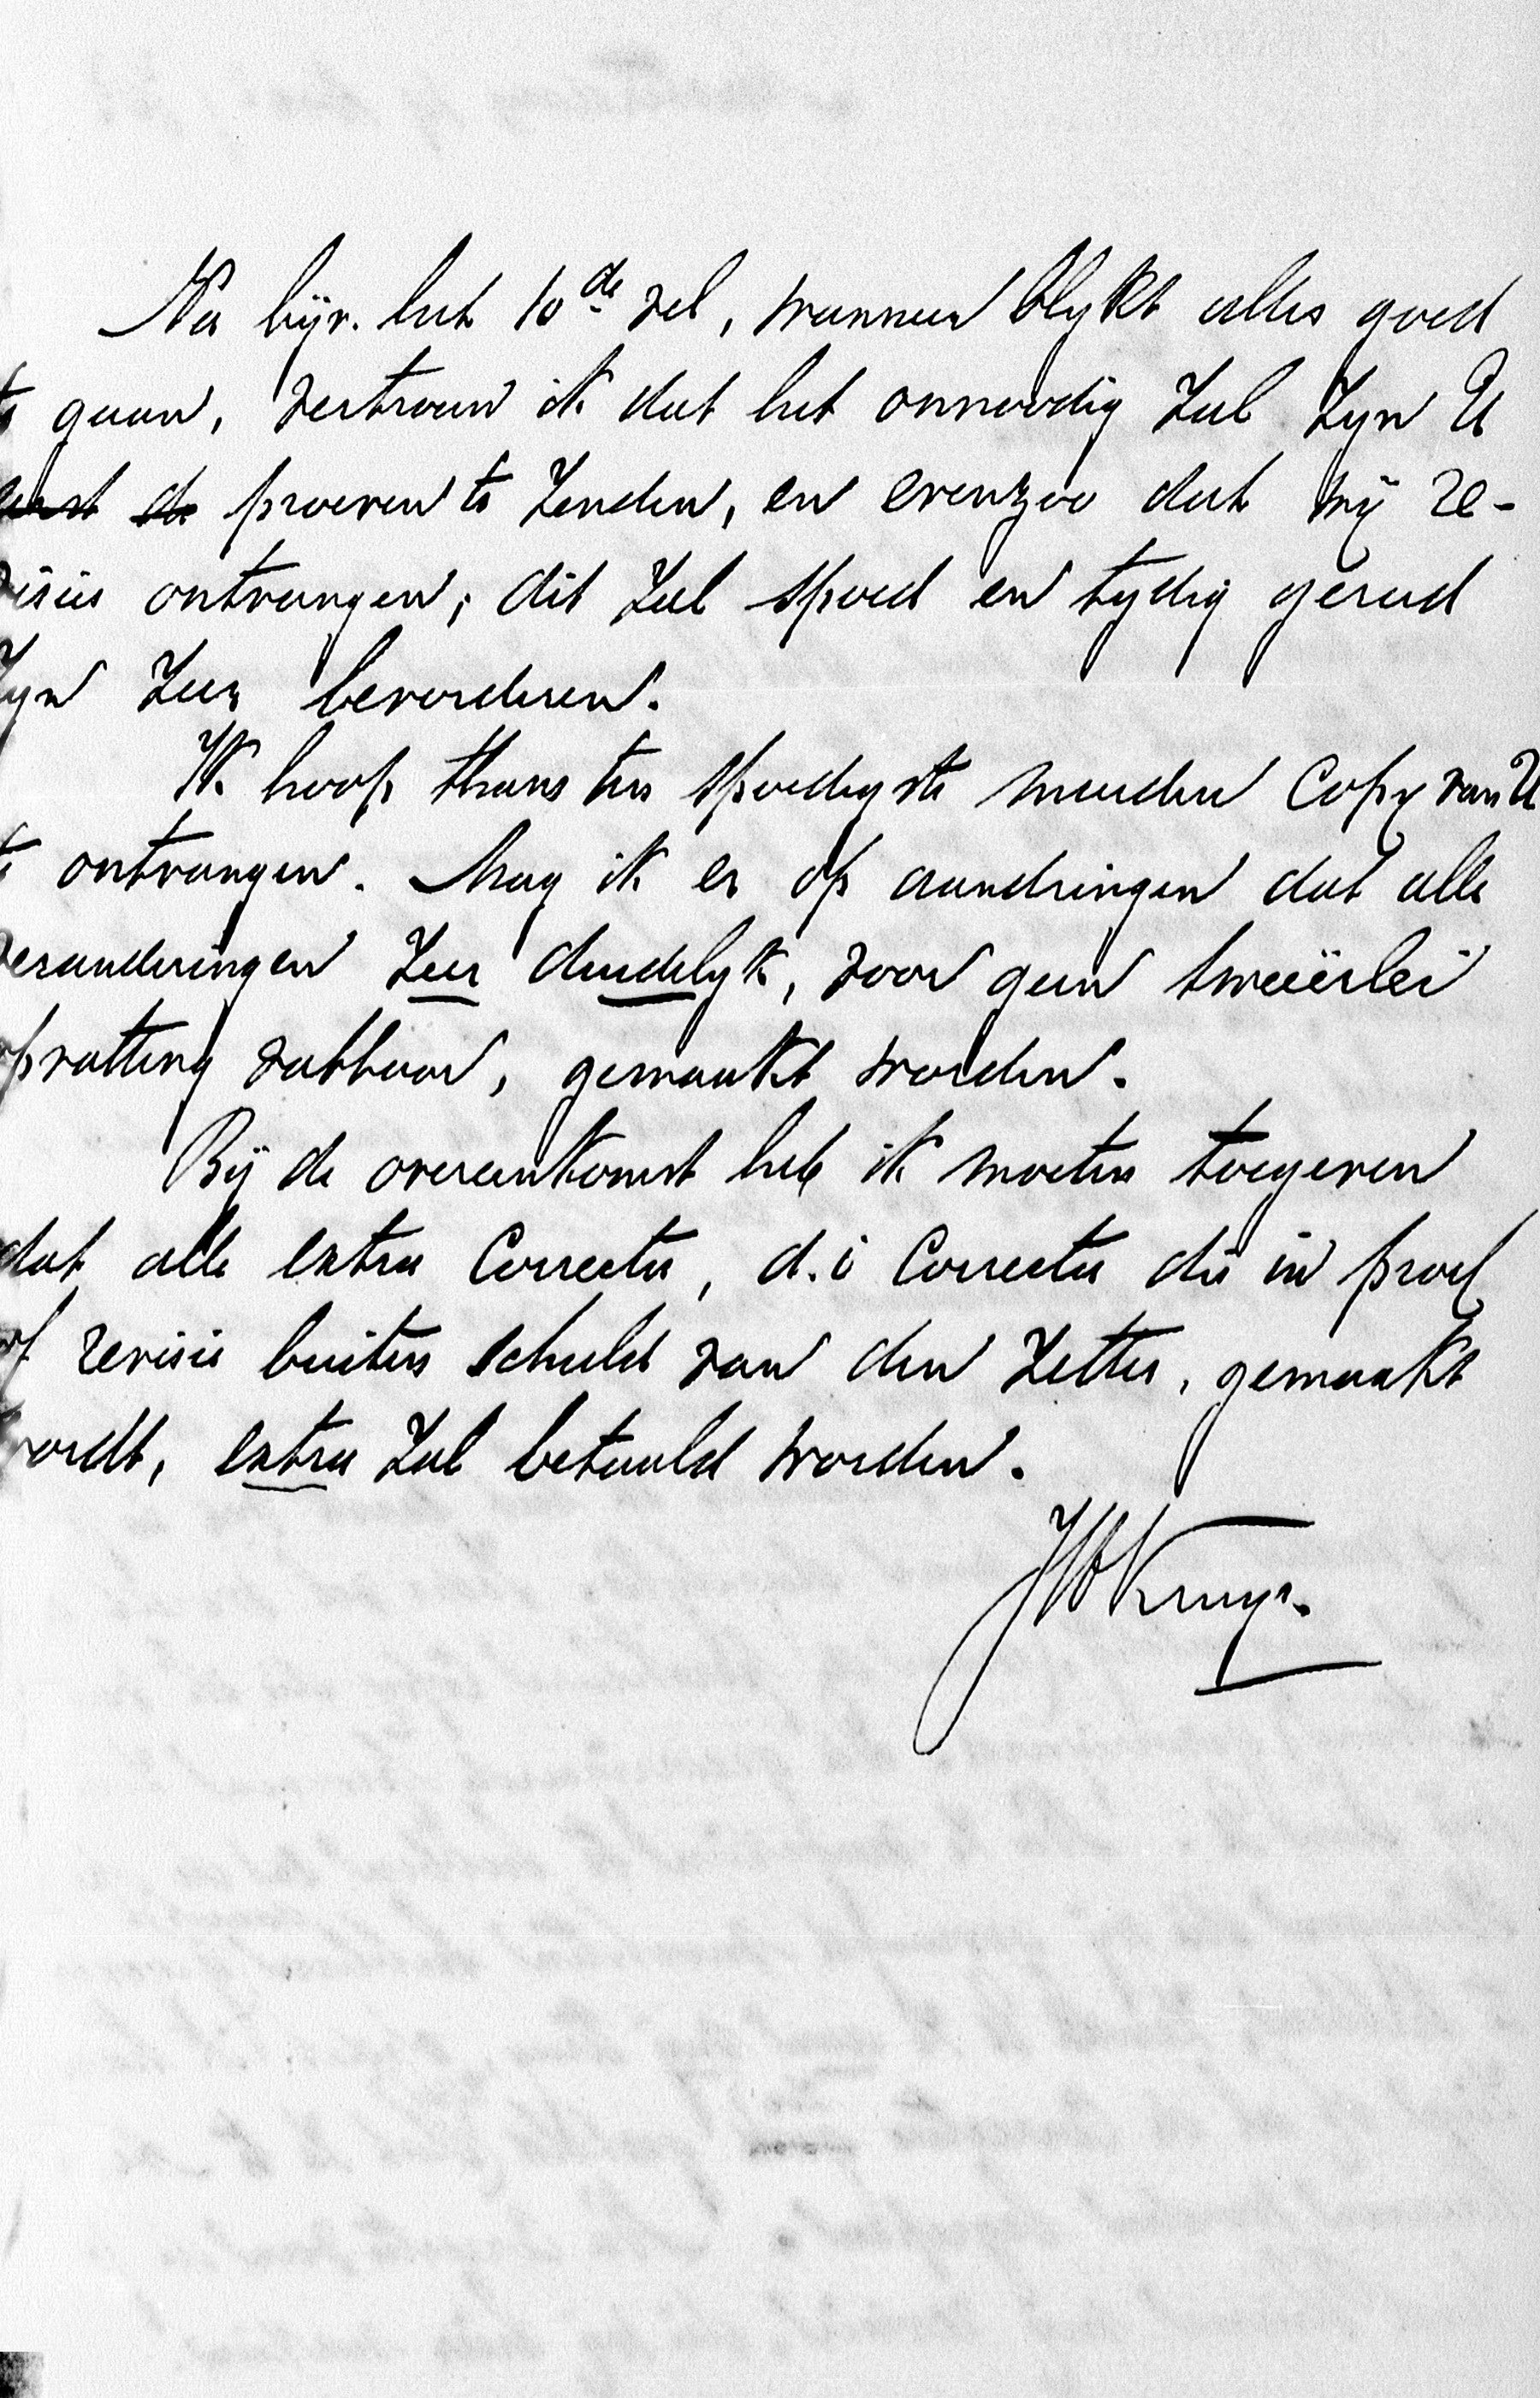 Na bijv. het 10de vel, wanneer blykt alles goed
te gaan, vertrouw ik dat het onnoodig zal zyn U
eerst de proeven te zenden, en evenzoo dat wij re-
visies ontvangen; dit zal spoed en tydig gereed
zyn zeer bevorderen.
Ik hoop thans ten spoedigste meerder Copy van U
te ontvangen. Mag ik er op aandringen dat alle
veranderingen zeer duidelyk, voor geen tweeërlei
opvatting vatbaar, gemaakt worden.
Bij de overeenkomst heb ik moeten toegeven
dat alle extra Correctie, d.i Correctie die in proef
of revisie buiten schuld van den Zetter, gemaakt
wordt, extra zal betaald worden.